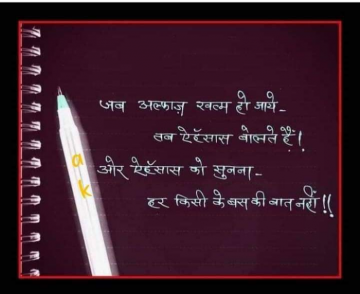 जब अल्फाज़ खत्म हो जाये-
तब ऐहॅसास बोलते हैं!
और ऐहॅसास को सुनना-
हर किसी के बस की बात नहीं!!
ak